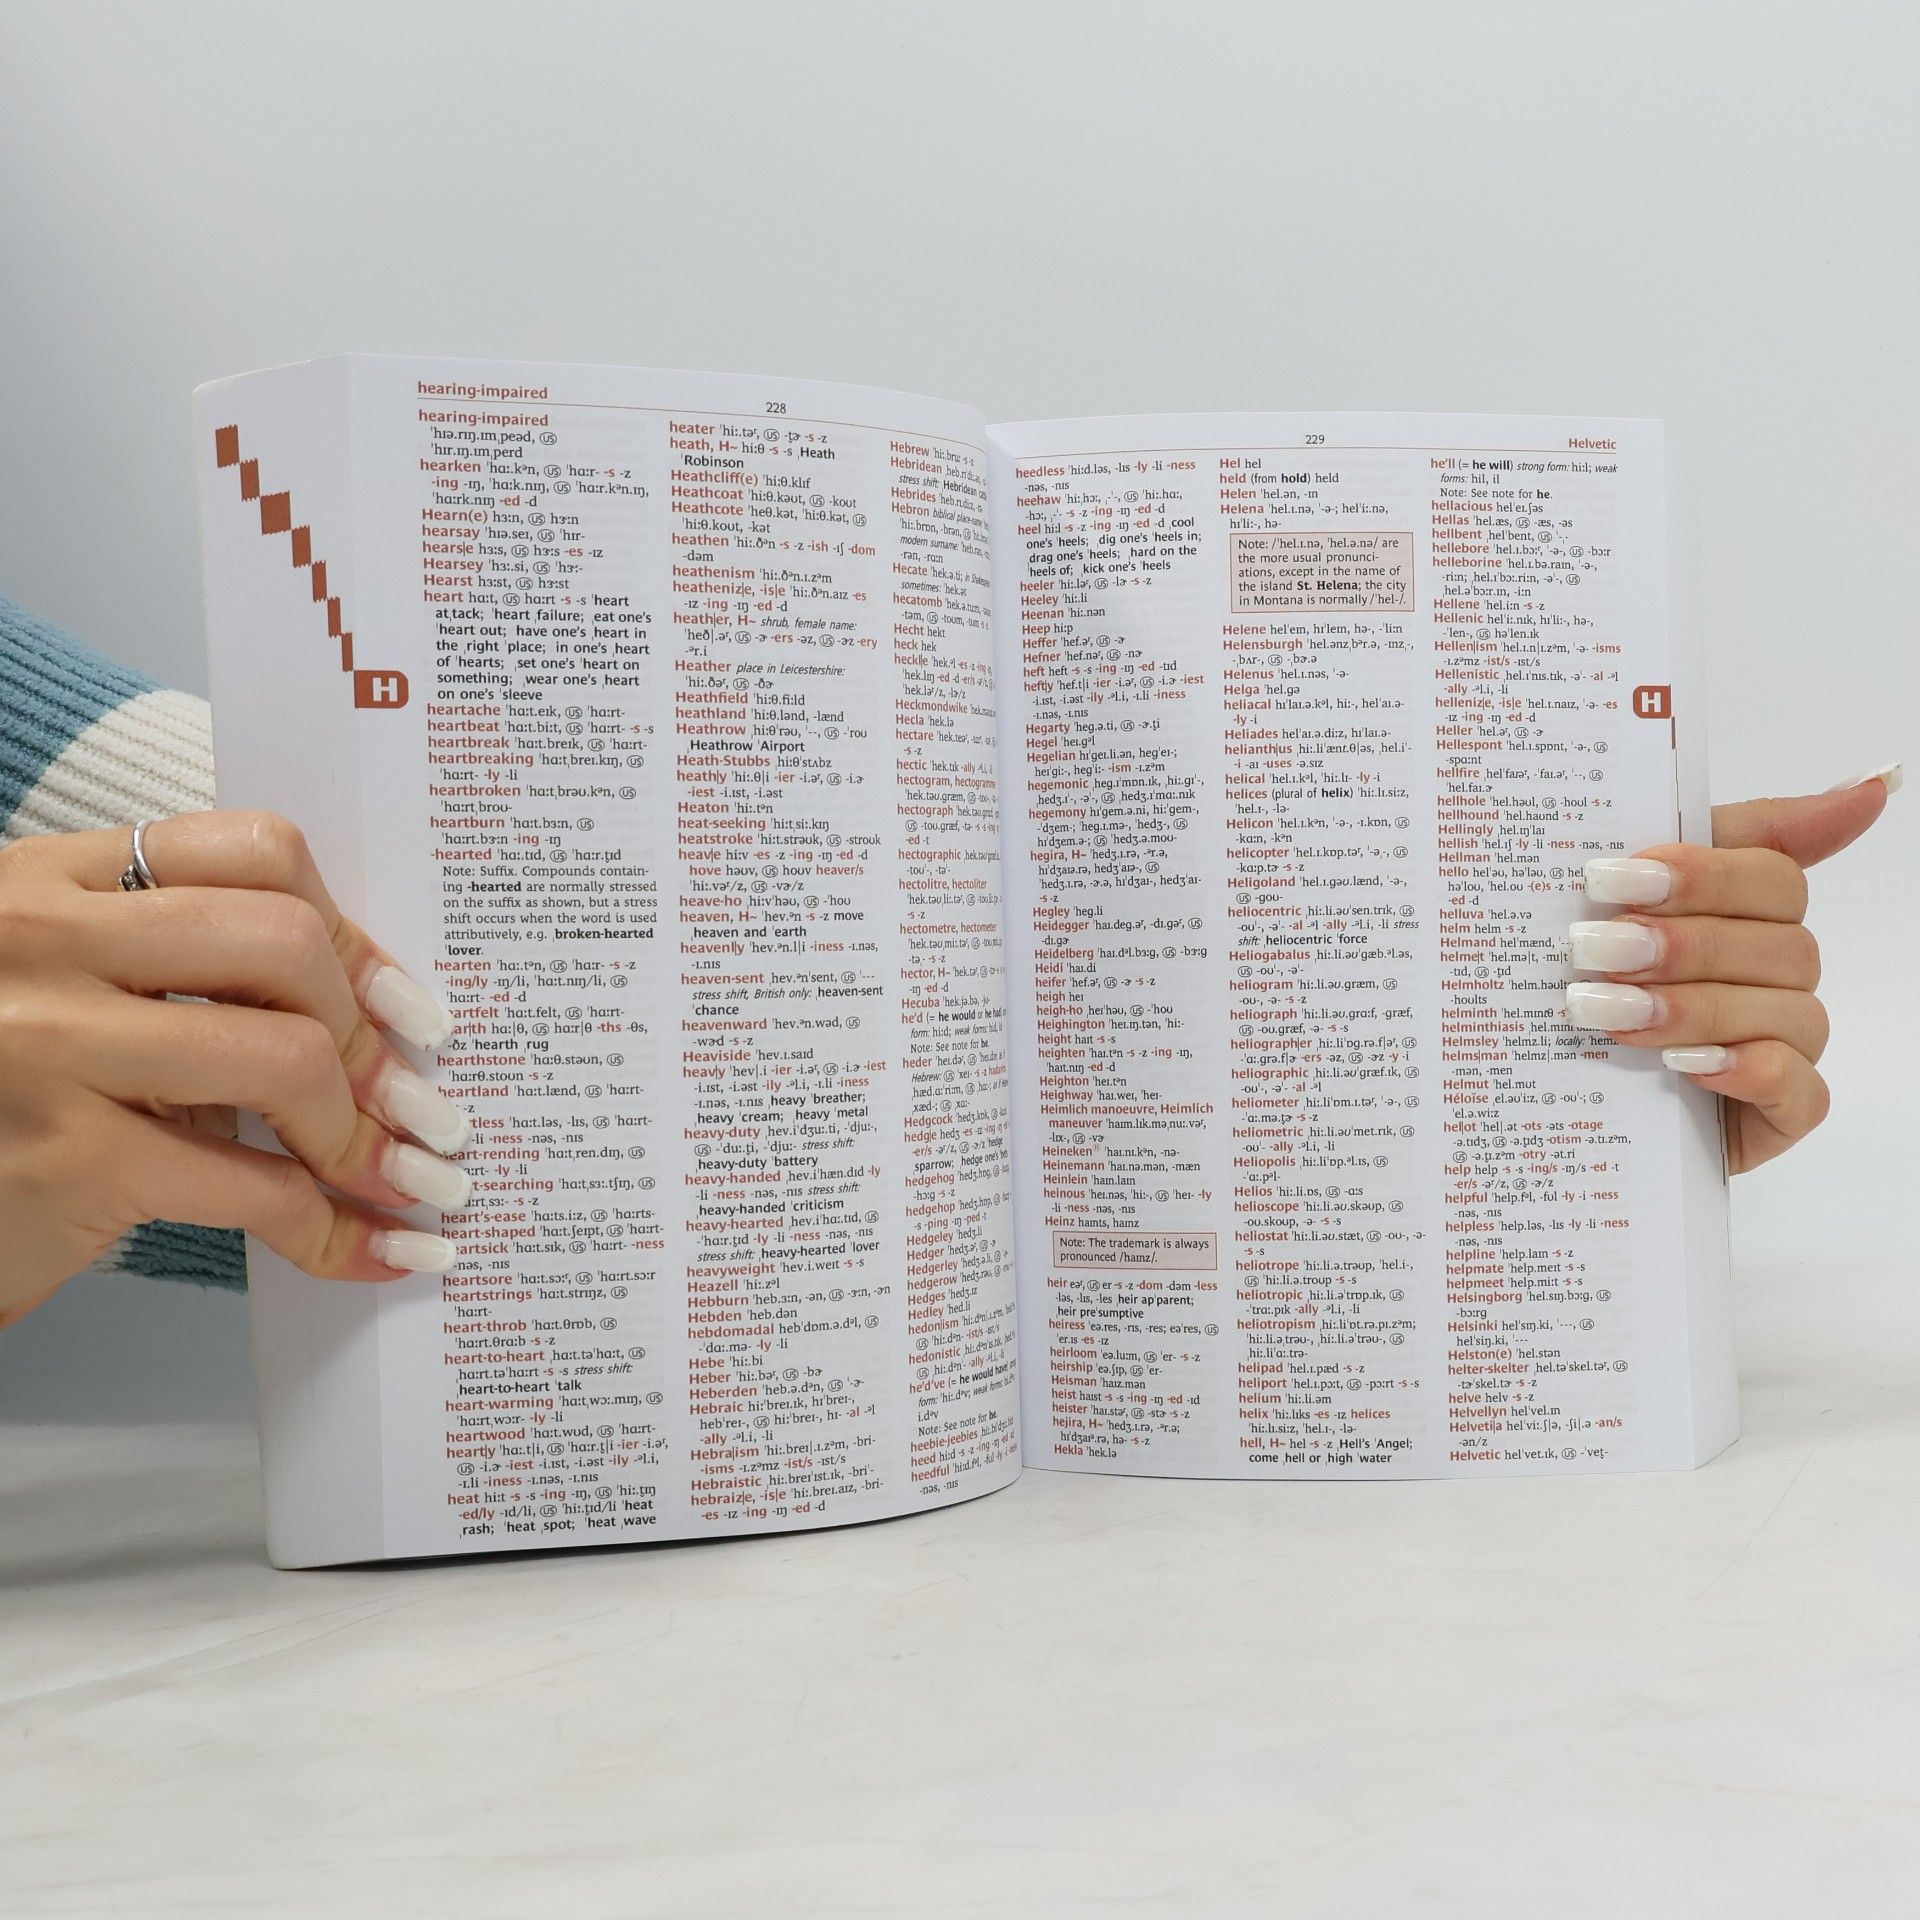 hearing-impaired
228
hearing-impaired
ˈhɪə.rɪŋ.ɪmˌpeəd, US
ˈhɪr.ɪŋ.ɪmˌperd
hearken ˈhɑː.kᵊn, US ˈhɑːr- -s -z
-ing -ɪŋ, ˈhɑːk.nɪŋ, US ˈhɑːr.kᵊn.ɪŋ,
ˈhɑːrk.nɪŋ -ed -d
Hearn(e) hɜːn, US hɝːn
hearsay ˈhɪə.seɪ, US ˈhɪr-
hears|e hɜːs, US hɝːs -es -ɪz
Hearsey ˈhɜː.si, US ˈhɝː-
Hearst hɜːst, US hɝːst
heart hɑːt, US hɑːrt -s -s ˈheart
atˌtack; ˈheart ˌfailure; ˌeat one's
ˈheart out; ˌhave one's ˌheart in
the ˌright ˈplace; ˌin one's ˌheart
of ˈhearts; ˌset one's ˈheart on
something; ˌwear one's ˌheart
on one's ˈsleeve
heartache ˈhɑːt.eɪk, US ˈhɑːrt-
heartbeat ˈhɑːt.biːt, US ˈhɑːrt- -s -s
heartbreak ˈhɑːt.breɪk, US ˈhɑːrt-
heartbreaking ˈhɑːtˌbreɪ.kɪŋ, US
ˈhɑːrt- -ly -li
heartbroken ˈhɑːtˌbrəʊ.kᵊn, US
ˈhɑːrtˌbroʊ-
heartburn ˈhɑːt.bɜːn, US
ˈhɑːrt.bɝːn -ing -ɪŋ
-hearted ˈhɑː.tɪd, US ˈhɑːr.t̬ɪd
Note: Suffix. Compounds contain-
ing -hearted are normally stressed
on the suffix as shown, but a stress
shift occurs when the word is used
attributively, e.g. ˌbroken-hearted
ˈlover.
hearten ˈhɑː.tᵊn, US ˈhɑːr- -s -z
-ing/ly -ɪŋ/li, ˈhɑːt.nɪŋ/li, US
ˈhɑːrt- -ed -d
ˈhɑːt.felt, US ˈhɑːrt-
hɑː|θ, US hɑːr|θ -ths -θs,
-ðz ˈhearth ˌrug
hearthstone ˈhɑːθ.stəʊn, US
ˈhɑːrθ.stoʊn -s -z
heartland ˈhɑːt.lænd, US ˈhɑːrt-
-z
ˈhɑːt.ləs, -lɪs, US ˈhɑːrt-
-li -ness -nəs, -nɪs
ˈhɑːtˌren.dɪŋ, US
-ly -li
ˈhɑːtˌsɜː.tʃɪŋ, US
-s -z
heart's-ease ˈhɑːts.iːz, US ˈhɑːrts-
heart-shaped ˈhɑːt.ʃeɪpt, US ˈhɑːrt-
ˈhɑːt.sɪk, US ˈhɑːrt- -ness
-nəs, -nɪs
heartsore ˈhɑːt.sɔːʳ, US ˈhɑːrt.sɔːr
heartstrings ˈhɑːt.strɪŋz, US
ˈhɑːrt-
heart-throb ˈhɑːt.θrɒb, US
ˈhɑːrt.θrɑːb -s -z
heart-to-heart ˌhɑːt.təˈhɑːt, US
ˌhɑːrt.təˈhɑːrt -s -s stress shift:
ˌheart-to-heart ˈtalk
heart-warming ˈhɑːtˌwɔː.mɪŋ, US
ˈhɑːrtˌwɔːr- -ly -li
heartwood ˈhɑːt.wʊd, US ˈhɑːrt-
heart|y ˈhɑː.t|i, US ˈhɑːr.t̬|i -ier -i.əʳ,
US -i.ɚ -iest -i.ɪst, -i.əst -ily -ᵊl.i,
-ɪ.li -iness -ɪ.nəs, -ɪ.nɪs
heat hiːt -s -s -ing -ɪŋ, US ˈhiː.t̬ɪŋ
-ed/ly -ɪd/li, US ˈhiː.t̬ɪd/li ˈheat
ˌrash; ˈheat ˌspot; ˈheat ˌwave
heater ˈhiː.təʳ, US -t̬ɚ -s -z
heath, H~ hiːθ -s -s ˌHeath
ˈRobinson
Heathcliff(e) ˈhiːθ.klɪf
Heathcoat ˈhiːθ.kəʊt, US -koʊt
Heathcote ˈheθ.kət, ˈhiːθ.kət, US
ˈhiːθ.koʊt, -kət
heathen ˈhiː.ðᵊn -s -z -ish -ɪʃ -dom
-dəm
heathenism ˈhiː.ðᵊn.ɪ.zᵊm
heatheniz|e, -is|e ˈhiː.ðᵊn.aɪz -es
-ɪz -ing -ɪŋ -ed -d
heath|er, H~ shrub, female name:
ˈheð|.əʳ, US -ɚ -ers -əz, US -ɚz -ery
-ᵊr.i
Heather place in Leicestershire:
ˈhiː.ðəʳ, US -ðɚ
Heathfield ˈhiːθ.fiːld
heathland ˈhiːθ.lənd, -lænd
Heathrow ˌhiːθˈrəʊ, ˈ--, US -ˈroʊ
ˌHeathrow ˈAirport
Heath-Stubbs ˌhiːθˈstʌbz
heath|y ˈhiː.θ|i -ier -i.əʳ, US -i.ɚ
-iest -i.ɪst, -i.əst
Heaton ˈhiː.tᵊn
heat-seeking ˈhiːtˌsiː.kɪŋ
heatstroke ˈhiːt.strəʊk, US -stroʊk
heav|e hiːv -es -z -ing -ɪŋ -ed -d
hove həʊv, US hoʊv heaver/s
ˈhiː.vəʳ/z, US -vɚ/z
heave-ho ˌhiːvˈhəʊ, US -ˈhoʊ
heaven, H~ ˈhev.ᵊn -s -z move
ˌheaven and ˈearth
heavenl|y ˈhev.ᵊn.l|i -iness -ɪ.nəs,
-ɪ.nɪs
heaven-sent ˌhev.ᵊnˈsent, US ˈ---
stress shift, British only: ˌheaven-sent
ˈchance
heavenward ˈhev.ᵊn.wəd, US
-wɚd -s -z
Heaviside ˈhev.ɪ.saɪd
heav|y ˈhev|.i -ier -i.əʳ, US -i.ɚ -iest
-i.ɪst, -i.əst -ily -ᵊl.i, -ɪ.li -iness
-ɪ.nəs, -ɪ.nɪs ˌheavy ˈbreather;
ˌheavy ˈcream; ˌheavy ˈmetal
heavy-duty ˌhev.iˈdʒuː.ti, -ˈdjuː-,
US -ˈduː.t̬i, -ˈdjuː- stress shift:
ˌheavy-duty ˈbattery
heavy-handed ˌhev.iˈhæn.dɪd -ly
-li -ness -nəs, -nɪs stress shift:
ˌheavy-handed ˈcriticism
heavy-hearted ˌhev.iˈhɑː.tɪd, US
-ˈhɑːr.t̬ɪd -ly -li -ness -nəs, -nɪs
stress shift: ˌheavy-hearted ˈlover
heavyweight ˈhev.i.weɪt -s -s
Heazell ˈhiː.zᵊl
Hebburn ˈheb.ɜːn, -ən, US -ɝːn, -ən
Hebden ˈheb.dən
hebdomadal hebˈdɒm.ə.dᵊl, US
-ˈdɑː.mə- -ly -li
Hebe ˈhiː.bi
Heber ˈhiː.bəʳ, US -bɚ
Heberden ˈheb.ə.dᵊn, US -ˈɚ-
Hebraic hiːˈbreɪ.ɪk, hɪˈbreɪ-,
hebˈreɪ-, US hiːˈbreɪ-, hɪ- -al -ᵊl
-ally -ᵊl.i, -li
Hebra|ism ˈhiː.breɪ|.ɪ.zᵊm, -bri-
-isms -ɪ.zᵊmz -ist/s -ɪst/s
Hebraistic ˌhiː.breɪˈɪst.ɪk, -briˈ-
hebraiz|e, -is|e ˈhiː.breɪ.aɪz, -bri-
-es -ɪz -ing -ɪŋ -ed -d
Hebrew ˈhiː.bruː -s -z
Hebridean
stress shift: Hebridean
Hebrides
Hebron biblical place-name
modern surname:
-rən, -rɑːn
Hecate ˈhek.ə.ti; in
sometimes: ˈhek.ət
hecatomb
Hecht hekt
heck hek
heckl|e
Heckmondwike
Hecla ˈhek.lə
hectare
-s -z
hectic ˈhek.tɪk -ally -ᵊl.i, -li
hectogram, hectogramme
hectograph
-ed -t
hectographic
hectolitre, hectoliter
-s -z
hectometre, hectometer
-s -z
hector, H~
-ɪŋ -ed -d
Hecuba ˈhek.jə.bə, -jʊ-
he'd (= he would or he had)
form: hiːd; weak forms:
Note: See note for he.
heder
Hedgcock
hedg|e hedʒ -es -ɪz -ing -ɪŋ
sparrow; ˌhedge one's
hedgehog
-s -z
hedgehop
-s -ping -ɪŋ -ped -t
Hedgeley ˈhedʒ.li
Hedger
Hedgerley
hedgerow
Hedges ˈhedʒ.ɪz
Hedley ˈhed.li
hedon|ism
hedonistic
he'd've (= he would have)
Note: See note for he.
heebie-jeebies
heed hiːd -s -z -ing -ɪŋ -ed
heedful ˈhiːd.fᵊl, -fʊl -ly -i
-nəs, -nɪs
229
Helvetic
heedless ˈhiːd.ləs, -lɪs -ly -li -ness
-nəs, -nɪs
heehaw ˈhiːˌhɔː, ˌ-ˈ-, US ˈhiː.hɑː,
-hɔː, ˌ-ˈ- -s -z -ing -ɪŋ -ed -d
heel hiːl -s -z -ing -ɪŋ -ed -d ˌcool
one's ˈheels; ˌdig one's ˈheels in;
ˌdrag one's ˈheels; ˌhard on the
ˈheels of; ˌkick one's ˈheels
heeler ˈhiː.ləʳ, US -lɚ -s -z
Heeley ˈhiː.li
Heenan ˈhiː.nən
Heep hiːp
Heffer ˈhef.əʳ, US -ɚ
Hefner ˈhef.nəʳ, US -nɚ
heft heft -s -s -ing -ɪŋ -ed -ɪd
heft|y ˈhef.t|i -ier -i.əʳ, US -i.ɚ -iest
-i.ɪst, -i.əst -ily -ᵊl.i, -ɪ.li -iness
-ɪ.nəs, -ɪ.nɪs
Hegarty ˈheg.ə.ti, US -ɚ.t̬i
Hegel ˈheɪ.gᵊl
Hegelian hɪˈgeɪ.li.ən, hegˈeɪ-;
heɪˈgiː-, hegˈiː- -ism -ɪ.zᵊm
hegemonic ˌheg.ɪˈmɒn.ɪk, ˌhiː.gɪˈ-,
ˌhedʒ.ɪˈ-, -əˈ-, US ˌhedʒ.ɪˈmɑː.nɪk
hegemony hɪˈgem.ə.ni, hiːˈgem-,
-ˈdʒem-; ˈheg.ɪ.mə-, ˈhedʒ-, US
hɪˈdʒem.ə-; US ˈhedʒ.ə.moʊ-
hegira, H~ ˈhedʒ.ɪ.rə, -ᵊr.ə,
hɪˈdʒaɪə.rə, hedʒˈaɪə-, US
ˈhedʒ.ɪ.rə, -ɚ.ə, hɪˈdʒaɪ-, hedʒˈaɪ-
-s -z
Hegley ˈheg.li
Heidegger ˈhaɪ.deg.əʳ, -dɪ.gəʳ, US
-dɪ.gɚ
Heidelberg ˈhaɪ.dᵊl.bɜːg, US -bɝːg
Heidi ˈhaɪ.di
heifer ˈhef.əʳ, US -ɚ -s -z
heigh heɪ
heigh-ho ˌheɪˈhəʊ, US -ˈhoʊ
Heighington ˈheɪ.ɪŋ.tən, ˈhiː-
height haɪt -s -s
heighten ˈhaɪ.tᵊn -s -z -ing -ɪŋ,
ˈhaɪt.nɪŋ -ed -d
Heighton ˈheɪ.tᵊn
Heighway ˈhaɪ.weɪ, ˈheɪ-
Heimlich manoeuvre, Heimlich
maneuver ˈhaɪm.lɪk.məˌnuː.vəʳ,
-lɪx-, US -vɚ
Heineken® ˈhaɪ.nɪ.kən, -nə-
Heinemann ˈhaɪ.nə.mən, -mæn
Heinlein ˈhaɪn.laɪn
heinous ˈheɪ.nəs, ˈhiː-, US ˈheɪ- -ly
-li -ness -nəs, -nɪs
Heinz haɪnts, haɪnz
Note: The trademark is always
pronounced /haɪnz/.
heir eəʳ, US er -s -z -dom -dəm -less
-ləs, -lɪs, -les ˌheir apˈparent;
ˌheir preˈsumptive
heiress ˈeə.res, -rɪs, -res; eəˈres, US
ˈer.ɪs -es -ɪz
heirloom ˈeə.luːm, US ˈer- -s -z
heirship ˈeə.ʃɪp, US ˈer-
Heisman ˈhaɪz.mən
heist haɪst -s -s -ing -ɪŋ -ed -ɪd
heister ˈhaɪ.stəʳ, US -stɚ -s -z
hejira, H~ ˈhedʒ.ɪ.rə, -ᵊr.ə;
hɪˈdʒaɪᵊ.rə, hə- -s -z
Hekla ˈhek.lə
Hel hel
held (from hold) held
Helen ˈhel.ən, -ɪn
Helena ˈhel.ɪ.nə, ˈ-ə-; helˈiː.nə,
hɪˈliː-, hə-
Note: /ˈhel.ɪ.nə, ˈhel.ə.nə/ are
the more usual pronunci-
ations, except in the name of
the island St. Helena; the city
in Montana is normally /ˈhel-/.
Helene helˈeɪn, hɪˈleɪn, hə-, -ˈliːn
Helensburgh ˈhel.ənz.bᵊr.ə, -ɪnz,-,
-ˌbʌr-, US -ˌbɝː.ə
Helenus ˈhel.ɪ.nəs, ˈ-ə-
Helga ˈhel.gə
heliacal hɪˈlaɪ.ə.kᵊl, hiː-, helˈaɪ.ə-
-ly -i
Heliades helˈaɪ.ə.diːz, hɪˈlaɪ.ə-
helianth|us ˌhiː.liˈænt.θ|əs, ˌhel.iˈ-
-i -aɪ -uses -ə.sɪz
helical ˈhel.ɪ.kᵊl, ˈhiː.lɪ- -ly -i
helices (plural of helix) ˈhiː.lɪ.siːz,
ˈhel.ɪ-, -lə-
Helicon ˈhel.ɪ.kən, ˈ-ə-, -ɪ.kɒn, US
-kɑːn, -kᵊn
helicopter ˈhel.ɪ.kɒp.təʳ, ˈ-ə,-, US
-kɑːp.tɚ -s -z
Heligoland ˈhel.ɪ.gəʊ.lænd, ˈ-ə-,
US -goʊ-
heliocentric ˌhiː.li.əʊˈsen.trɪk, US
-oʊˈ-, -əˈ- -al -ᵊl -ally -ᵊl.i, -li stress
shift: ˌheliocentric ˈforce
Heliogabalus ˌhiː.li.əʊˈgæb.ᵊl.əs,
US -oʊˈ-, -əˈ-
heliogram ˈhiː.li.əʊ.græm, US
-oʊ-, -ə- -s -z
heliograph ˈhiː.li.əʊ.grɑːf, -græf,
US -oʊ.græf, -ə- -s -s
heliograph|er ˌhiː.liˈɒg.rə.f|əʳ, US
-ˈɑː.grə.f|ɚ -ers -əz, US -ɚz -y -i
heliographic ˌhiː.li.əʊˈgræf.ɪk, US
-oʊˈ-, -əˈ- -al -ᵊl
heliometer ˌhiː.liˈɒm.ɪ.təʳ, ˈ-ə-, US
-ˈɑː.mə.t̬ɚ -s -z
heliometric ˌhiː.li.əʊˈmet.rɪk, US
-oʊˈ- -ally -ᵊl.i, -li
Heliopolis ˌhiː.liˈɒp.ᵊl.ɪs, US
-ˈɑː.pᵊl-
Helios ˈhiː.li.ɒs, US -ɑːs
helioscope ˈhiː.li.əʊ.skəʊp, US
-oʊ.skoʊp, -ə- -s -s
heliostat ˈhiː.li.əʊ.stæt, US -oʊ-, -ə-
-s -s
heliotrope ˈhiː.li.ə.trəʊp, ˈhel.i-,
US ˈhiː.li.ə.troʊp -s -s
heliotropic ˌhiː.li.əˈtrɒp.ɪk, US
-ˈtrɑː.pɪk -ally -ᵊl.i, -li
heliotropism ˌhiː.liˈɒt.rə.pɪ.zᵊm;
ˌhiː.li.əˈtrəʊ-, ˌhiː.li.əˈtrəʊ-, US
ˌhiː.liˈɑː.trə-
helipad ˈhel.ɪ.pæd -s -z
heliport ˈhel.ɪ.pɔːt, US -pɔːrt -s -s
helium ˈhiː.li.əm
helix ˈhiː.lɪks -es -ɪz helices
ˈhiː.lɪ.siːz, ˈhel.ɪ-, -lə-
hell, H~ hel -s -z ˌHell's ˈAngel;
come ˌhell or ˌhigh ˈwater
he'll (= he will) strong form: hiːl; weak
forms: hɪl, il
Note: See note for he.
hellacious helˈeɪ.ʃəs
Hellas ˈhel.æs, US -æs, -əs
hellbent ˌhelˈbent, US ˈ-,-
hellebore ˈhel.ɪ.bɔːʳ, ˈ-ə-, US -bɔːr
helleborine ˈhel.ɪ.bə.raɪn, ˈ-ə-,
-riːn; ˌhel.ɪˈbɔː.riːn, -əˈ-, US
ˌhel.əˈbɔːr.ɪn, -iːn
Hellene ˈhel.iːn -s -z
Hellenic helˈiː.nɪk, hɪˈliː-, hə-,
-ˈlen-, US həˈlen.ɪk
Hellen|ism ˈhel.ɪ.n|ɪ.zᵊm, ˈ-ə- -isms
-ɪ.zᵊmz -ist/s -ɪst/s
Hellenistic ˌhel.ɪˈnɪs.tɪk, -əˈ- -al -ᵊl
-ally -ᵊl.i, -li
helleniz|e, -is|e ˈhel.ɪ.naɪz, ˈ-ə- -es
-ɪz -ing -ɪŋ -ed -d
Heller ˈhel.əʳ, US -ɚ
Hellespont ˈhel.ɪ.spɒnt, ˈ-ə-, US
-spɑːnt
hellfire ˌhelˈfaɪəʳ, -ˈfaɪ.əʳ, ˈ--, US
ˈhel.faɪ.ɚ
hellhole ˈhel.həʊl, US -hoʊl -s -z
hellhound ˈhel.haʊnd -s -z
Hellingly ˌhel.ɪŋˈlaɪ
hellish ˈhel.ɪʃ -ly -li -ness -nəs, -nɪs
Hellman ˈhel.mən
hello helˈəʊ, həˈləʊ, US
həˈloʊ, ˈhel.oʊ -(e)s -z
-ed -d
helluva ˈhel.ə.və
helm helm -s -z
Helmand helˈmænd,
helme|t ˈhel.mə|t, -mɪ|t
-tɪd, US -t̬ɪd
Helmholtz
-hoʊlts
helminth ˈhelm.ɪnθ
helminthiasis
Helmsley ˈhelmz.li; locally:
helms|man ˈhelmz|.mən -men
-mən, -men
Helmut ˈhel.mʊt
Héloïse ˌel.əʊˈiːz, US -oʊˈ-; US
ˈel.ə.wiːz
hel|ot ˈhel|.ət -ots -əts -otage
-ə.tɪdʒ, US -ə.t̬ɪdʒ -otism -ə.tɪ.zᵊm,
US -ə.t̬ɪ.zᵊm -otry -ət.ri
help help -s -s -ing/s -ɪŋ/s -ed -t
-er/s -əʳ/z, US -ɚ/z
helpful ˈhelp.fᵊl, -fʊl -ly -i -ness
-nəs, -nɪs
helpless ˈhelp.ləs, -lɪs -ly -li -ness
-nəs, -nɪs
helpline ˈhelp.laɪn -s -z
helpmate ˈhelp.meɪt -s -s
helpmeet ˈhelp.miːt -s -s
Helsingborg ˈhel.sɪŋ.bɔːg, US
-bɔːrg
Helsinki helˈsɪŋ.ki, ˈ---, US
helˈsɪŋ.ki, ˈ---
Helston(e) ˈhel.stən
helter-skelter ˌhel.təˈskel.təʳ, US
-t̬ɚˈskel.t̬ɚ -s -z
helve helv -s -z
Helvellyn helˈvel.ɪn
Helveti|a helˈviː.ʃ|ə, -ʃi|.ə -an/s
-ən/z
Helvetic helˈvet.ɪk, US -ˈvet̬-
H
H